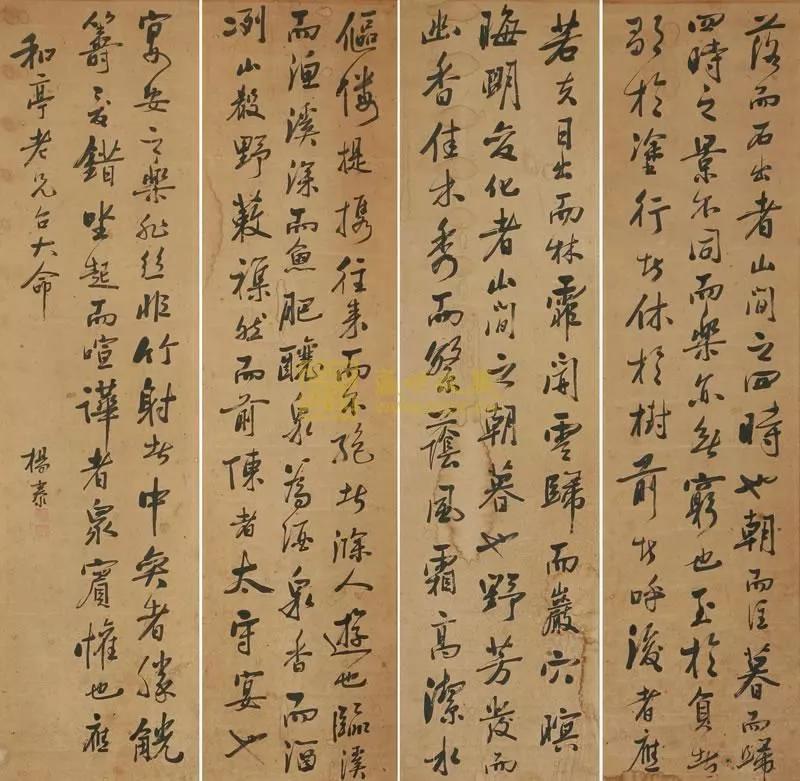 落而石出者山間之四時也朝而往暮而歸
四時之景不同而樂亦無窮也至於負者
歌於塗行者休於樹前者呼後者應
若夫日出而林霏開雲歸而巖穴暝
晦明變化者山間之朝暮也野芳發而
幽香佳木秀而繁蔭風霜高潔水
傴僂提攜往來而不絕者滁人遊也臨溪
而漁溪深而魚肥釀泉為酒泉香而酒
冽山殽野蔌襍然而前陳者太守宴也
宴安之樂非絲非竹射者中奕者勝觥
籌交錯坐起而喧譁者眾賓懽也應
和亭老兄台大命
楊泰